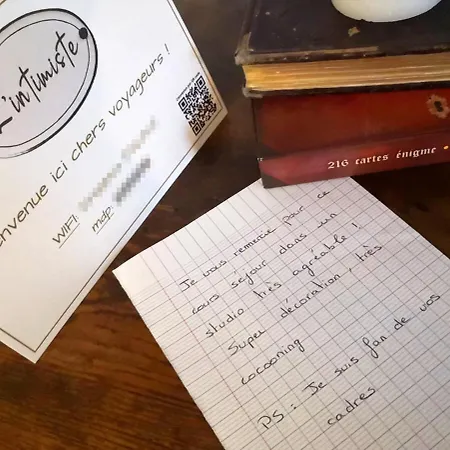 L'intimiste
envenue ici chers voyageurs !
WIFI
mdp:
216 cartes énigme •
Je vous remercie pour ce
cours séjour dans un
studio très agréable !
Super décoration, très
cocooning
PS : Je suis fan de vos
cadres